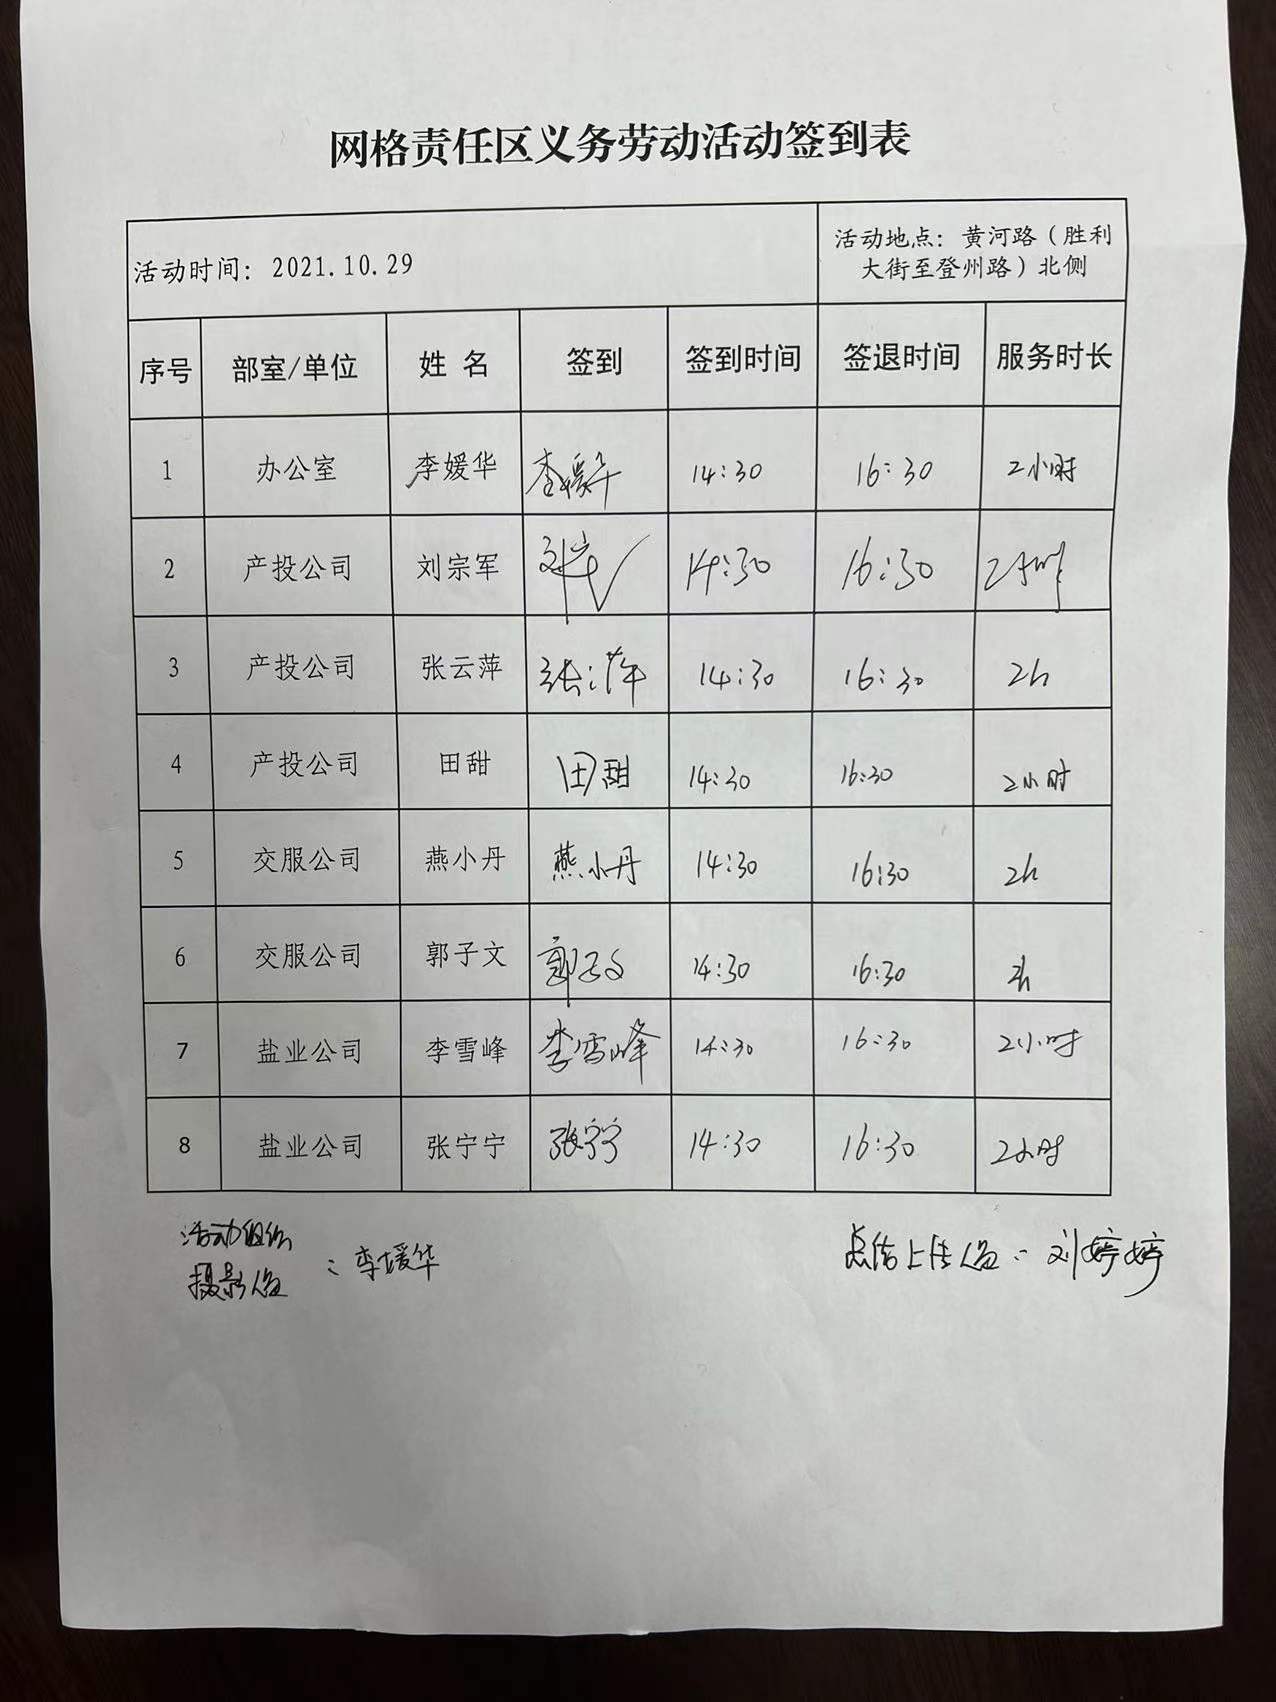 网格责任区义务劳动活动签到表
活动时间：2021.10.29
活动地点：黄河路（胜利
大街至登州路）北侧
序号 部室/单位 姓 名 签到 签到时间 签退时间 服务时长
1 办公室 李媛华 李媛华 14:30 16:30 2小时
2 产投公司 刘宗军 14:30 16:30 2小时
3 产投公司 张云萍 张云萍 14:30 16:30 2h
4 产投公司 田甜 田甜 14:30 16:30 2小时
5 交服公司 燕小丹 燕小丹 14:30 16:30 2h
6 交服公司 郭子文 郭子文 14:30 16:30 2h
7 盐业公司 李雪峰 李雪峰 14:30 16:30 2小时
8 盐业公司 张宁宁 张宁宁 14:30 16:30 2小时
活动组织
摄影人员 ：李媛华
总结上传人员：刘婷婷